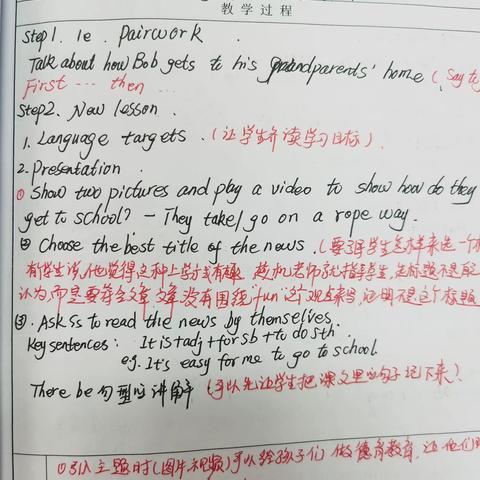 教学过程
Step1. 1e. Pairwork.
Talk about how Bob gets to his grandparents' home (Say to
First ... then ...
Step2. New lesson.
1. Language targets. (让学生齐读学习目标).
2. Presentation.
① Show two pictures and play a video to show how do they
get to school? — They take/go on a rope way.
② Choose the best title of the news. (要了解学生怎样来选一个
有学生说,他觉得这种上学方式有趣 趁机老师就指导学生,选标题不是
认为,而是要符合文章 文章没有围绕"fun"这个观点来写,证明不是这个标题
③. Ask Ss to read the news by themselves.
Key sentences: It is + adj + for sb + to do sth.
e.g. It's easy for me to go to school.
There be 句型的讲解 (可以先让学生把课文里的句子记下来)
①引入主题时(图片、视频)可以给孩子们做德育教育,让他们